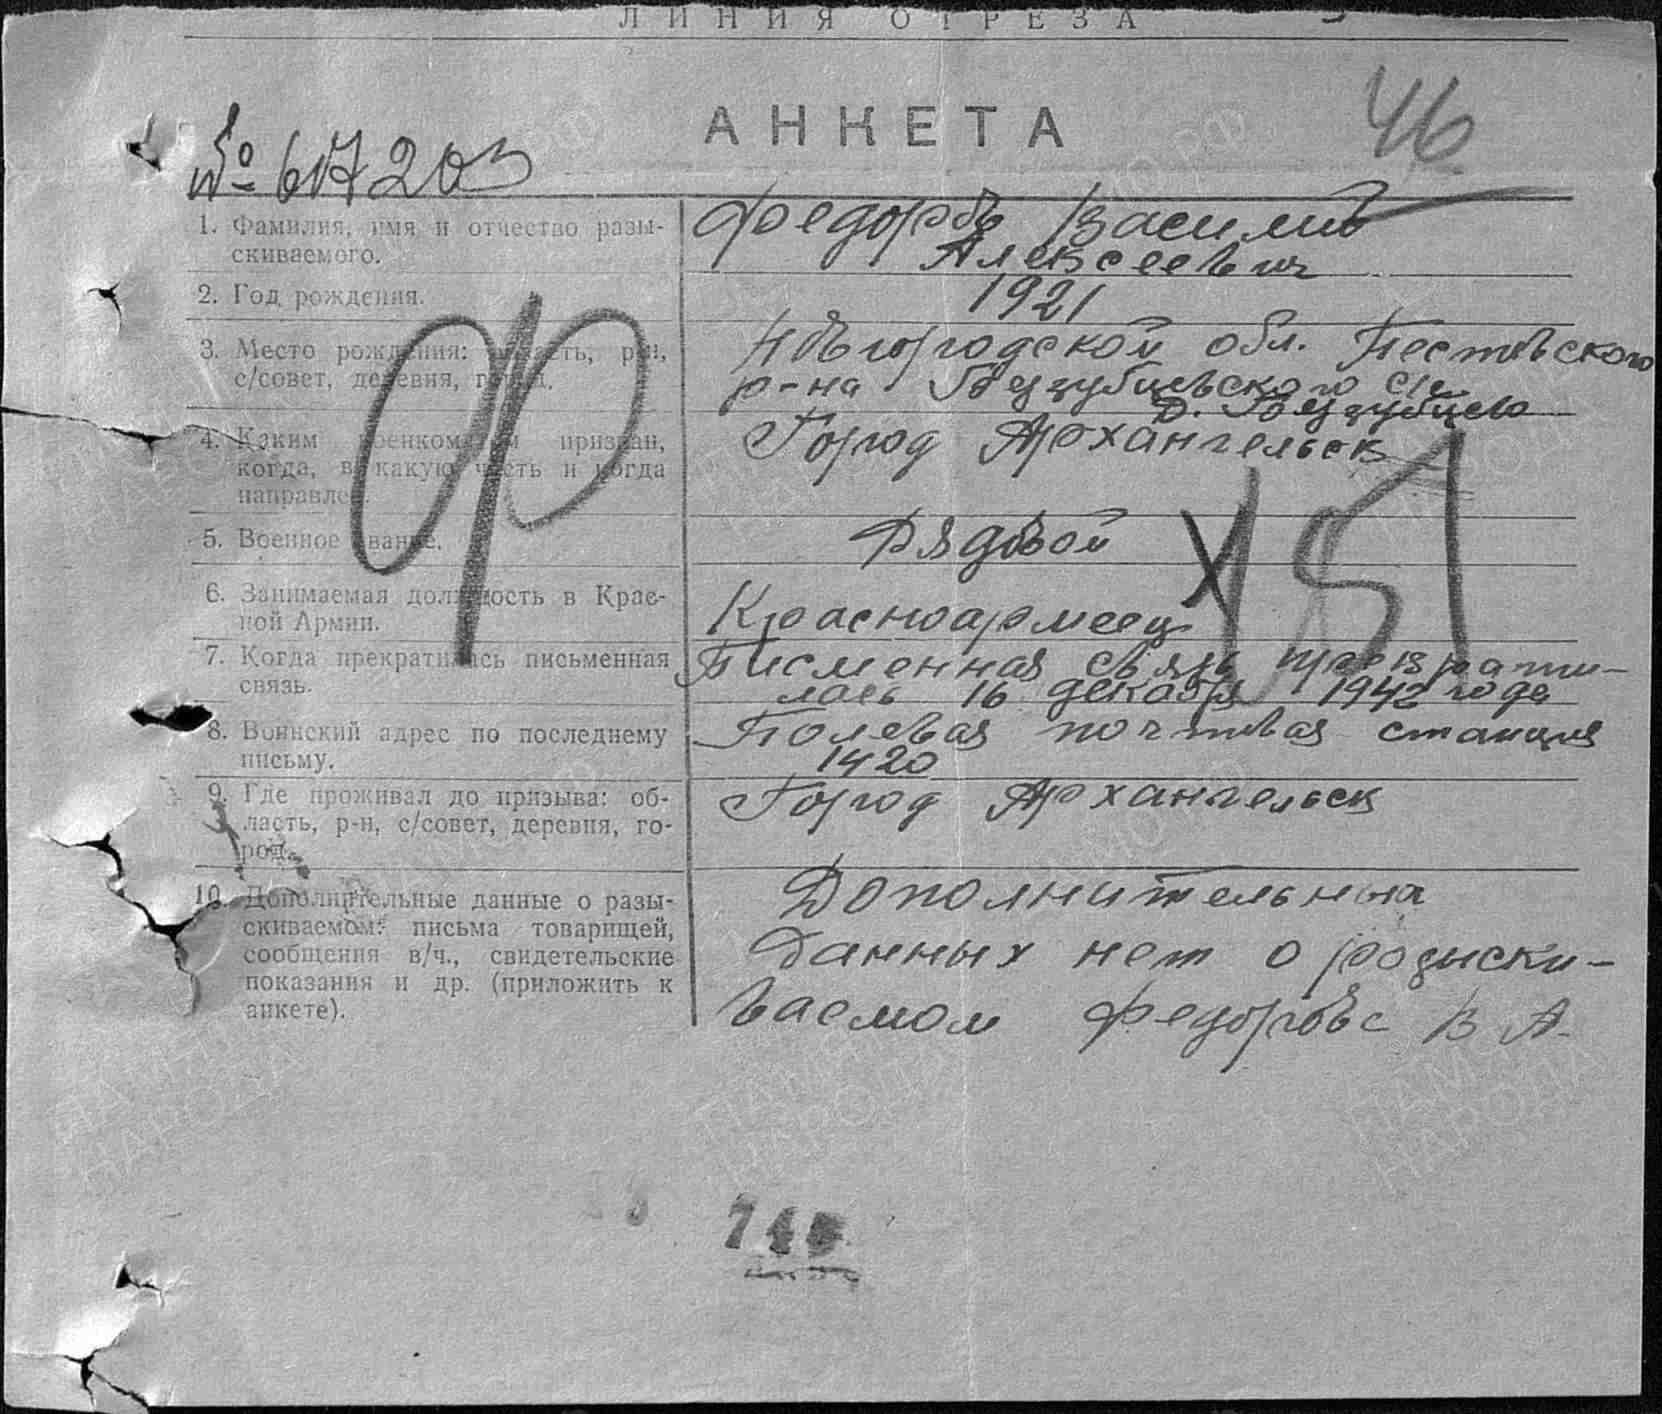 ЛИНИЯ ОТРЕЗА
АНКЕТА
46
№ 61720
1. Фамилия, имя и отчество разы-
скиваемого.
Федоров Василий
Алексеевич
2. Год рождения.
1921
3. Место рождения: область, р-н,
с/совет, деревня, город.
Новгородской обл. Пестовского
р-на Беззубцевского с/с
д. Беззубцево
4. Каким военкоматом призван,
когда, в какую часть и когда
направлен.
Город Архангельск
5. Военное звание.
Рядовой
6. Занимаемая должность в Крас-
ной Армии.
Красноармеец
7. Когда прекратилась письменная
связь.
Писменная связь прекрати-
лась 16 декабря 1942 года
8. Воинский адрес по последнему
письму.
Полевая почтовая станция
1420
9. Где проживал до призыва: об-
ласть, р-н, с/совет, деревня, го-
род.
Город Архангельск
10. Дополнительные данные о разы-
скиваемом: письма товарищей,
сообщения в/ч., свидетельские
показания и др. (приложить к
анкете).
Дополнительна
данных нет о розыски-
ваемом Федорове В А.
ПАМЯТЬ
НАРОДА